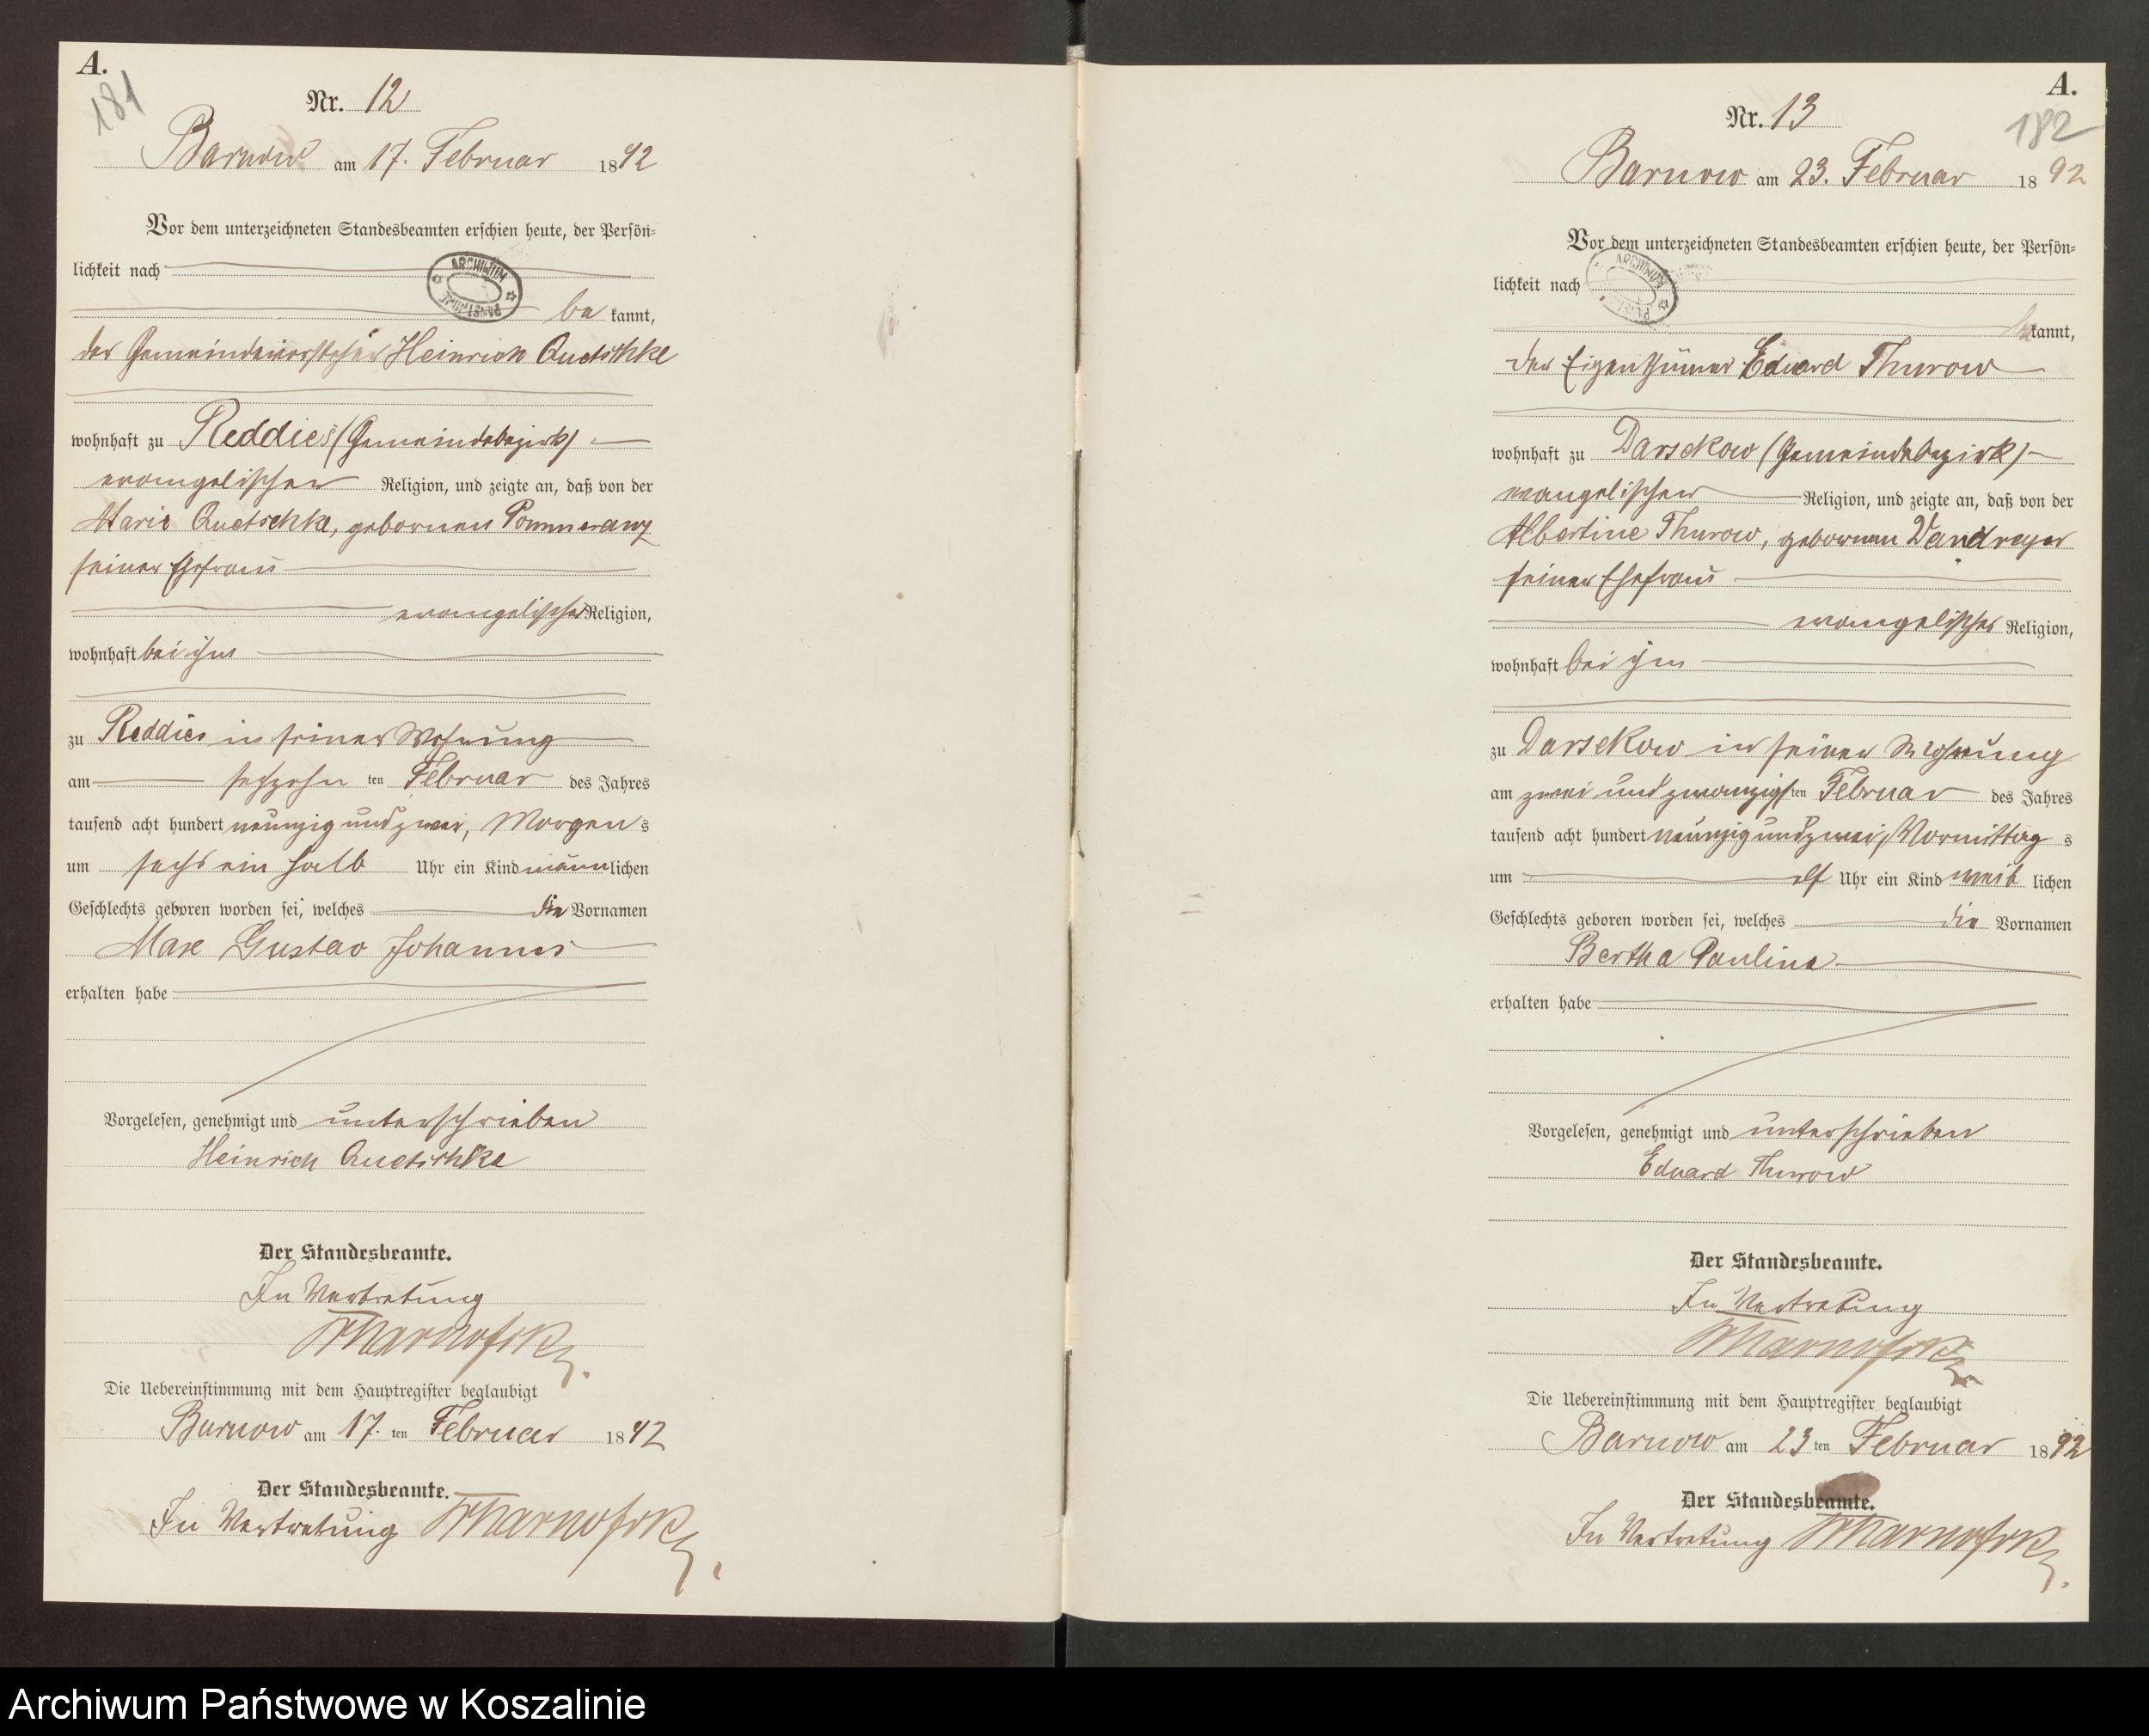 A.
181
Nr. 12
Barnow am 17. Februar 1892
Vor dem unterzeichneten Standesbeamten erschien heute, der Persön-
lichkeit nach
be kannt,
der Gemeindevorsteher Heinrich Quetschke
wohnhaft zu Reddies (Gemeindebezirk)
evangelischer Religion, und zeigte an, daß von der
Marie Quetschke, gebornen Pommeranz
seiner Ehefrau
evangelischer Religion,
wohnhaft bei ihm
zu Reddies in seiner Wohnung
am sechzehn ten Februar des Jahres
tausend acht hundert neunzig und zwei, Morgens
um sechs ein halb Uhr ein Kind männlichen
Geschlechts geboren worden sei, welches die Vornamen
Max Gustav Johannes
erhalten habe
Vorgelesen, genehmigt und unterschrieben
Heinrich Quetschke
Der Standesbeamte.
In Vertretung
Die Uebereinstimmung mit dem Hauptregister beglaubigt
Barnow am 17. ten Februar 1892
Der Standesbeamte.
In Vertretung
A.
182
Nr. 13
Barnow am 23. Februar 1892
Vor dem unterzeichneten Standesbeamten erschien heute, der Persön-
lichkeit nach
bekannt,
der Eigenthümer Eduard Thurow
wohnhaft zu Darsekow (Gemeindebezirk)
evangelischer Religion, und zeigte an, daß von der
Albertine Thurow, gebornen Vandreyer
seiner Ehefrau
evangelischer Religion,
wohnhaft bei ihm
zu Darsekow in seiner Wohnung
am zwei und zwanzigsten Februar des Jahres
tausend acht hundert neunzig und zwei, Vormittags
um elf Uhr ein Kind weiblichen
Geschlechts geboren worden sei, welches die Vornamen
Bertha Pauline
erhalten habe
Vorgelesen, genehmigt und unterschrieben
Eduard Thurow
Der Standesbeamte.
In Vertretung
Die Uebereinstimmung mit dem Hauptregister beglaubigt
Barnow am 23 ten Februar 1892
Der Standesbeamte.
In Vertretung
ARCHIWUM
ARCHIWUM
Archiwum Państwowe w Koszalinie